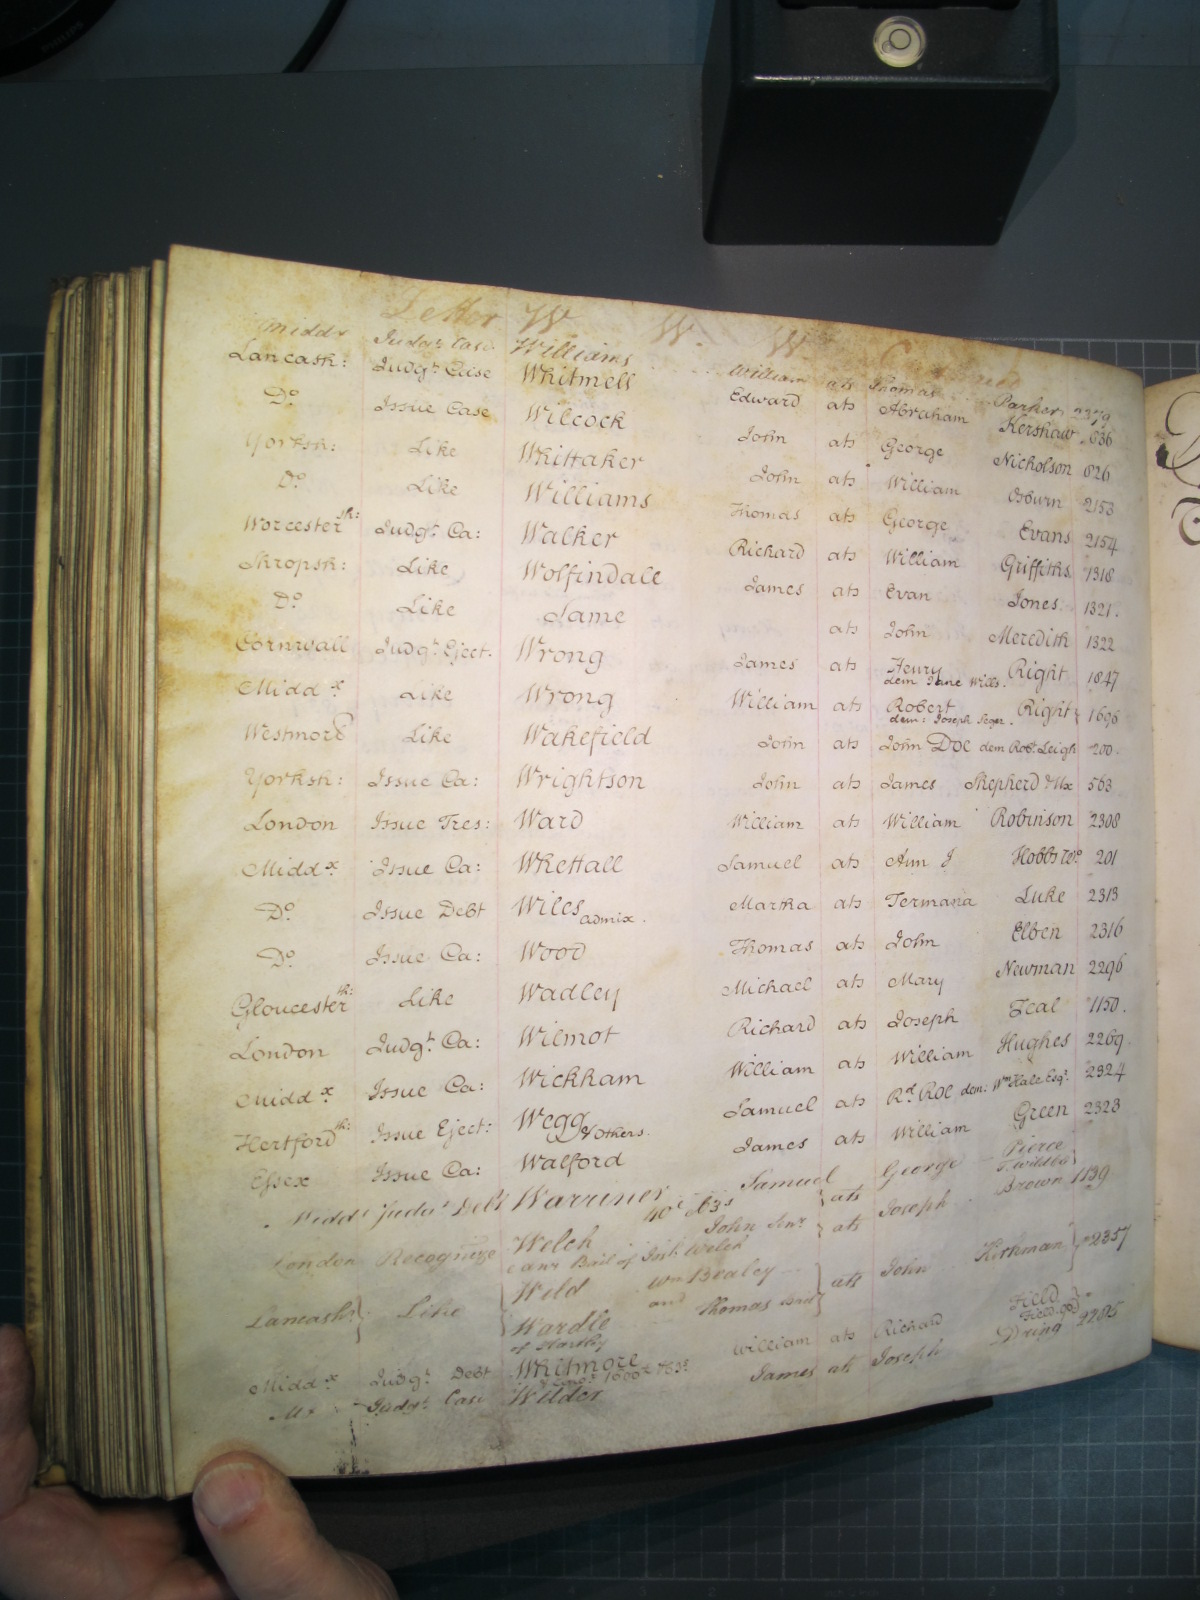 Letter W W. W
Midds Judgt Case Williams William ats Thomas Parker 2379
Lancash: Judgt Case Whitmell Edward ats Abraham Kershaw 636
Do Issue Case Wilcock John ats George Nicholson 826
Yorksh: Like Whittaker John ats William Osburn 2153
Do Like Williams Thomas ats George Evans 2154
Worcestersh: Judgt Ca: Walker Richard ats William Griffiths 1318
Shropsh: Like Wolfindale James ats Evan Jones 1321.
Do Like Same ats John Meredith 1322
Cornwall Judgt Eject. Wrong James ats Henry Right 1847
dem Jane Wills.
Middx Like Wrong William ats Robert Right 1696
dem: Joseph Seger.
Westmord Like Wakefield John ats John Doe dem Robt Leigh 200.
Yorksh: Issue Ca: Wrightson John ats James Shepherd & Ux 563
London Issue Tres: Ward William ats William Robinson 2308
Middx Issue Ca: Whettall Samuel ats Ann J Hobbs Wo 201
Do Issue Debt Wiles admix. Martha ats Termana Luke 2313
Do Issue Ca: Wood Thomas ats John Elben 2316
Gloucesterth: Like Wadley Michael ats Mary Newman 2296
London Judgt Ca: Wilmot Richard ats Joseph Teal 1150.
Middx Issue Ca: Wickham William ats William Hughes 2269
Hertfordth: Issue Eject: Wegg & others. Samuel ats Rd Roe dem: Wm Hale Esqr. 2324
Essex Issue Ca: Walford James ats William Green 2323
Midds Judgt Debt Warriner Samuel ats George Pierce
40£ 63s
London Recognize Welch John Senr ats Joseph Brown 1139
Bail of Josh Welch
Lancash: Like Weld Wm Bealey ats John Kirkman 2357
Wardle and Thomas
Middx Judgt Debt Whitmore William ats Richard Field
Mx Judgt Case Wilder James ats Joseph Dring 2285